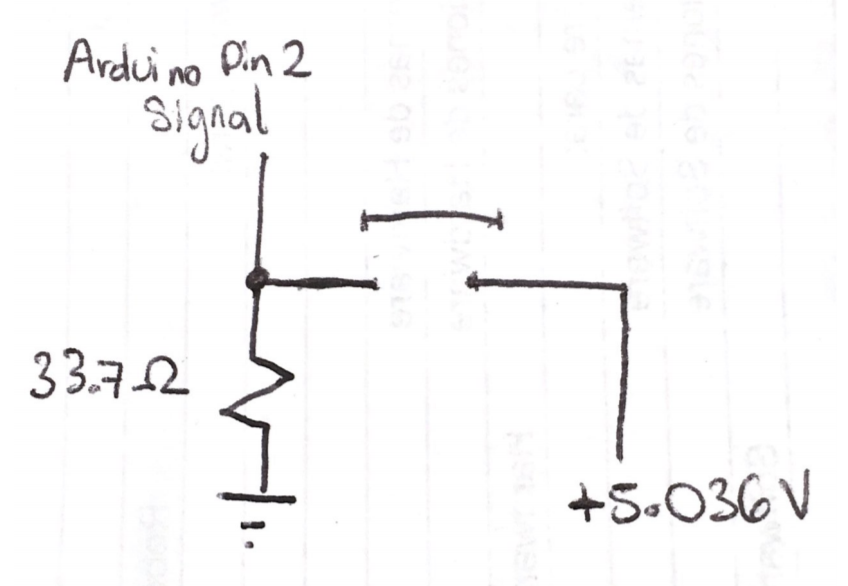 Arduino Pin 2
Signal
33.7Ω
+5.036V